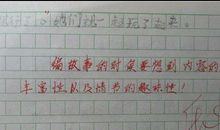 她们就一起玩了起来。
编故事的时候要想到内容的
丰富性以及情节的趣味性！